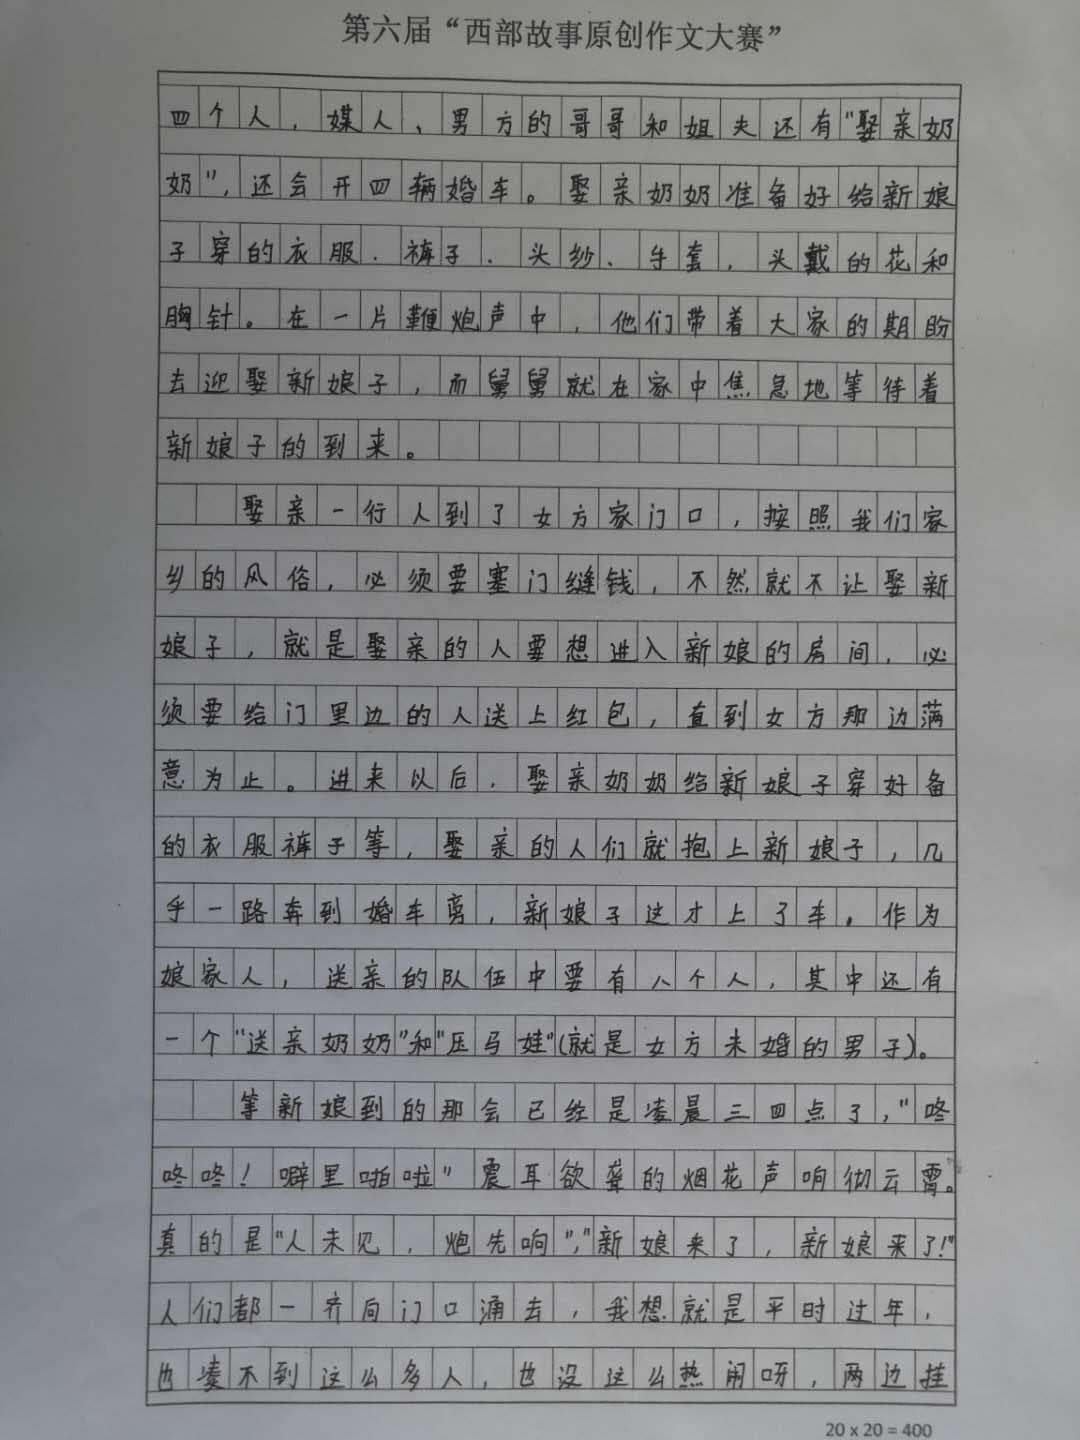 第六届“西部故事原创作文大赛”
四个人，媒人、男方的哥哥和姐夫还有“娶亲奶
奶”，还会开四辆婚车。娶亲奶奶准备好给新娘
子穿的衣服、裤子、头纱、手套，头戴的花和
胸针。在一片鞭炮声中，他们带着大家的期盼
去迎娶新娘子，而舅舅就在家中焦急地等待着
新娘子的到来。
娶亲一行人到了女方家门口，按照我们家
乡的风俗，必须要塞门缝钱，不然就不让娶新
娘子，就是娶亲的人要想进入新娘的房间，必
须要给门里边的人送上红包，直到女方那边满
意为止。进来以后，娶亲奶奶给新娘子穿好备
的衣服裤子等，娶亲的人们就抱上新娘子，几
乎一路奔到婚车离，新娘子这才上了车。作为
娘家人，送亲的队伍中要有八个人，其中还有
一个“送亲奶奶”和“压马娃”（就是女方未婚的男子）。
等新娘到的那会已经是凌晨三四点了，“咚
咚咚！噼里啪啦”震耳欲聋的烟花声响彻云霄。
真的是“人未见，炮先响”，“新娘来了，新娘来了！”
人们都一齐向门口涌去，我想就是平时过年，
也凑不到这么多人，也没这么热闹呀，两边挂
20 x 20 = 400